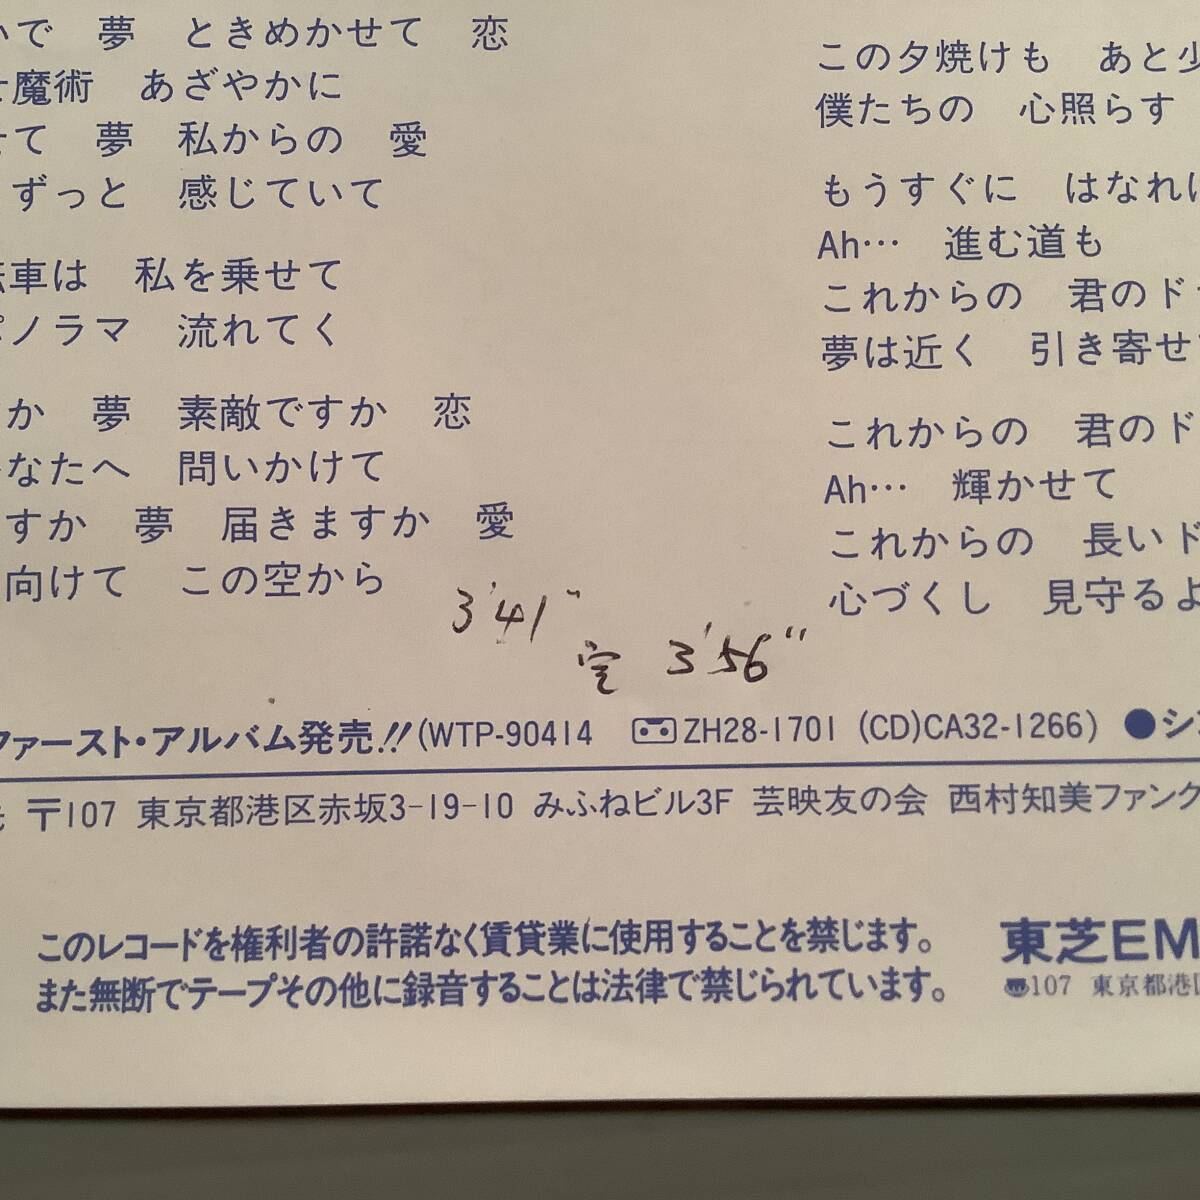 いで 夢 ときめかせて 恋
せ魔術 あざやかに
せて 夢 私からの 愛
ずっと 感じていて
転車は 私を乗せて
パノラマ 流れてく
か 夢 素敵ですか 恋
なたへ 問いかけて
すか 夢 届きますか 愛
向けて この空から
この夕焼けも あと少
僕たちの 心照らす
もうすぐに はなれば
Ah… 進む道も
これからの 君のド
夢は近く 引き寄せ
これからの 君のド
Ah… 輝かせて
これからの 長いド
心づくし 見守るよ
3'41"
完 3'56"
ファースト・アルバム発売!!(WTP-90414 ZH28-1701 (CD)CA32-1266) ●シ
〒107 東京都港区赤坂3-19-10 みふねビル3F 芸映友の会 西村知美ファンク
このレコードを権利者の許諾なく賃貸業に使用することを禁じます。
また無断でテープその他に録音することは法律で禁じられています。
東芝EM
107 東京都港